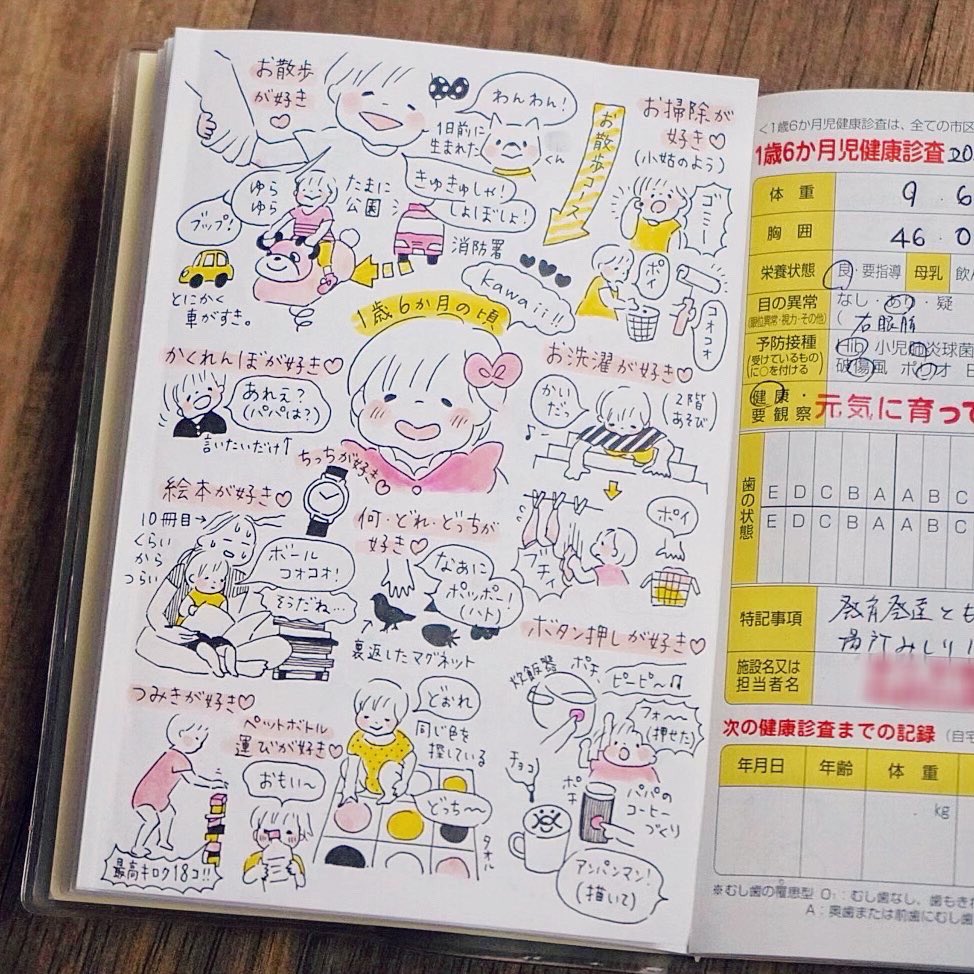 お散歩
が好き♡
わんわん!
1日前に
生まれた
くん
お散歩コース
お掃除が
好き♡
(小姑のよう)
ゴミー
きゅきゅしゃ!
しょぼしょ!
ゆら
ゆら
たまに
公園
消防署
ブッブ!
とにかく
車がすき。
ポイ
コオコオ
kawaii!!
1歳6か月の頃
かくれんぼが好き♡
あれぇ?
(パパは?)
言いたいだけ↑
お洗濯が好き♡
かい
だっ
(2階
あそび)
♪
ブチィ
ポイ
ちっちが好き♡
絵本が好き♡
10冊目→
くらい
から
つらい
ボール
コオコオ!
そうだね…
何・どれ・どっちが
好き♡
なぁに
ポッポー!
(ハト)
裏返したマグネット
ボタン押しが好き♡
炊飯器
ポチ
ピーピー♫
フォ〜〜
(押せた)
チョコ
ポチ
パパの
コーヒー
づくり
アンパンマン!
(描いて)
つみきが好き♡
最高キロク18コ!!
ペットボトル
運びが好き♡
おもい〜
どおれ
同じ色を
探している
どっち〜
タオル
<1歳6か月児健康診査は、全ての市区
1歳6か月児健康診査
体重 9.6
胸囲 46.0
栄養状態 良・要指導 母乳
目の異常 なし・あり・疑
(眼位異常・視力・その他)
予防接種 Hib 小児肺炎球菌
(受けているもの
に○を付ける) 破傷風 ポリオ
健康・
要観察 元気に育って
歯の状態
E D C B A A B C
E D C B A A B C
特記事項
発育発達とも
施設名又は
担当者名
次の健康診査までの記録 (自宅
年月日 年齢 体重
kg
※むし歯の罹患型 O₁:むし歯なし、歯もき
A:奥歯または前歯にむし